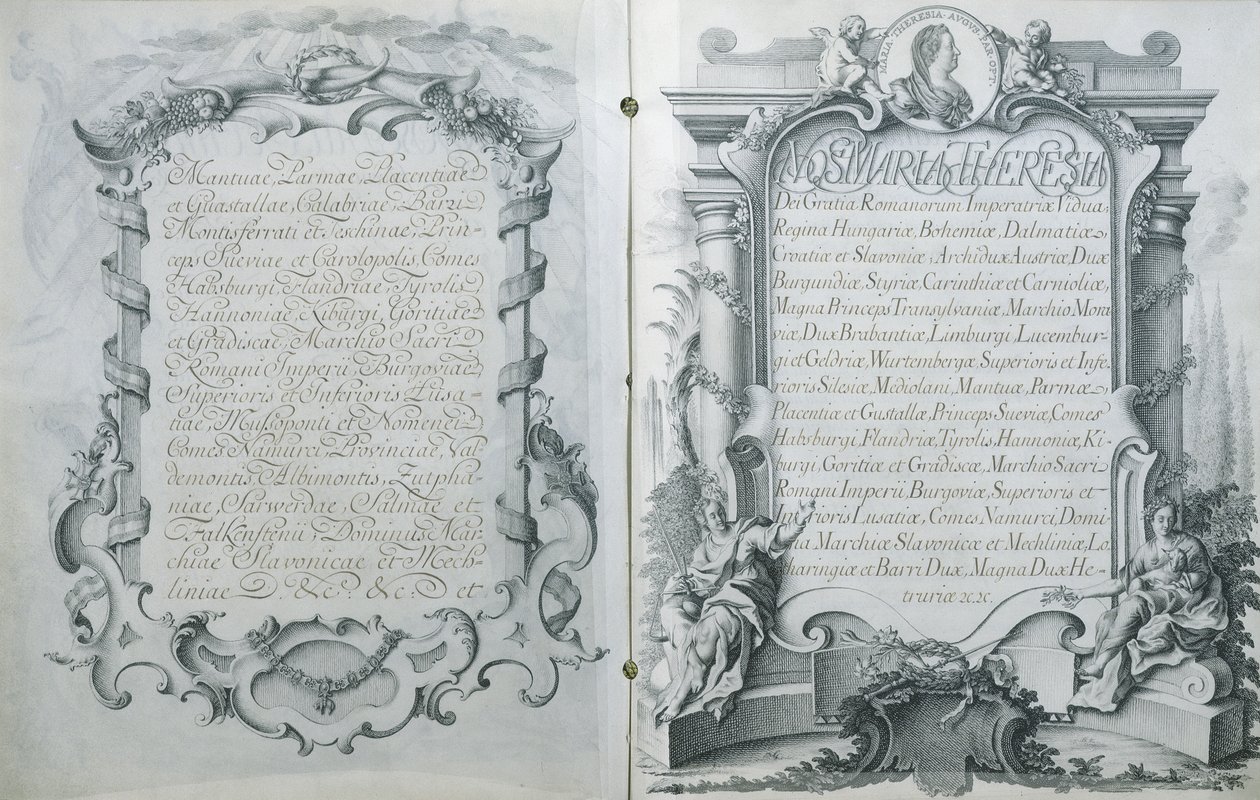 Mantuae, Parmae, Placentiae
et Guastallae, Calabriae, Barri
Montisferrati et Teschinae, Prin=
ceps Sueviae et Carolopolis, Comes
Habsburgi, Flandriae, Tyrolis
Hannoniae, Kiburgi, Goritiae
et Gradiscae, Marchio Sacri
Romani Imperii, Burgoviae
Superioris et Inferioris Lusa=
tiae, Mussoponti et Nomenei
Comes Namurci, Provinciae, Val
demontis, Albimontis, Zutpha=
niae, Sarwerdae, Salmae et
Falkenstenii, Dominus Mar=
chiae Slavonicae et Mech=
liniae &c. &c: et
MARIA THERESIA · AVGVS. PAR. OPT.
NOS MARIA THERESIA
Dei Gratia Romanorum Imperatrix Vidua,
Regina Hungariæ, Bohemiæ, Dalmatiæ,
Croatiæ et Slavoniæ, Archidux Austriæ, Dux
Burgundiæ, Styriæ, Carinthiæ et Carnioliæ,
Magna Princeps Transylvaniæ, Marchio Mora
viæ, Dux Brabantiæ, Limburgi, Lucembur=
gi et Geldriæ, Wurtembergæ, Superioris et Infe=
rioris Silesiæ, Mediolani, Mantuæ, Parmæ,
Placentiæ et Gustallæ, Princeps Sueviæ, Comes
Habsburgi, Flandriæ, Tyrolis, Hannoniæ, Ki=
burgi, Goritiæ et Gradiscæ, Marchio Sacri
Romani Imperii, Burgoviæ, Superioris et
Inferioris Lusatiæ, Comes Namurci, Domi=
na Marchiæ Slavonicæ et Mechliniæ, Lo
tharingiæ et Barri Dux, Magna Dux He=
truriæ &c. &c.